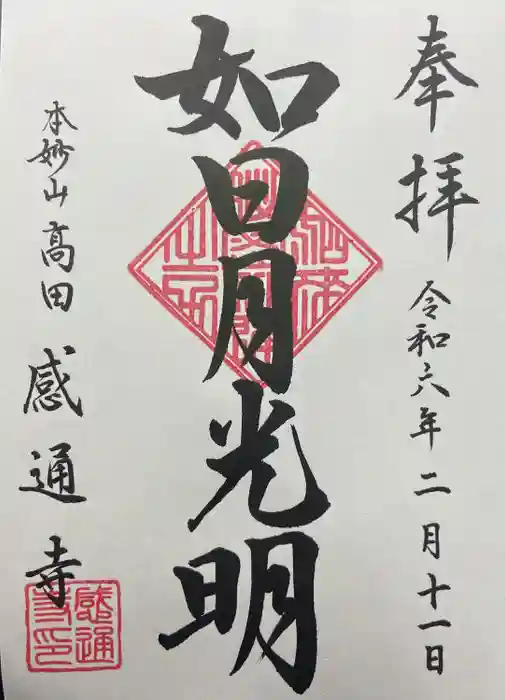 奉拝 令和六年二月十一日
如日月光明
本妙山 高田 感通寺
感通寺印